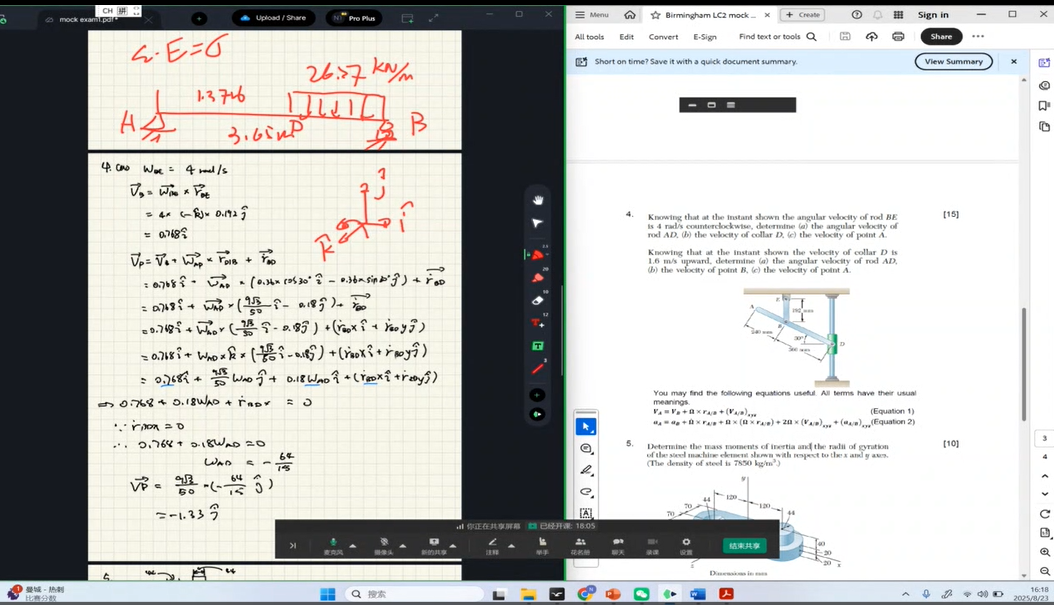 CH 拼
mock exam1.pdf*
Upload / Share
Pro Plus
ε·E=σ
26.27 kN/m
1.3746
A
3.65m
P
B
4. (a) W_BE = 4 rad/s
V_B = W_BE × r_BE
= 4× (-k̂)× 0.192 ĵ
= 0.768 î
V_D = V_B + W_AD × r_D/B + ṙ_BD
= 0.768î + W_AD × (0.36× cos30° î - 0.36× sin30° ĵ) + ṙ_BD
= 0.768î + W_AD × (9√3/50 î - 0.18 ĵ) + ṙ_BD
= 0.768î + W_AD × (9√3/50 î - 0.18 ĵ) + (ṙ_BDx î + ṙ_BDy ĵ)
= 0.768î + W_AD × k̂ × (9√3/50 î - 0.18 ĵ) + (ṙ_BDx î + ṙ_BDy ĵ)
= 0.768î + 9√3/50 W_AD ĵ + 0.18 W_AD î + (ṙ_BDx î + ṙ_BDy ĵ)
⇒ 0.768 + 0.18 W_AD + ṙ_BDx = 0
∵ ṙ_BDx = 0
∴ 0.768 + 0.18 W_AD = 0
W_AD = - 64/15
V_D = 9√3/50 × (- 64/15 ĵ)
= -1.33 ĵ
ĵ
î
k̂
Menu
Birmingham LC2 mock ...
Create
Sign in
All tools
Edit
Convert
E-Sign
Find text or tools
Share
Short on time? Save it with a quick document summary.
View Summary
4. Knowing that at the instant shown the angular velocity of rod BE [15]
is 4 rad/s counterclockwise, determine (a) the angular velocity of
rod AD, (b) the velocity of collar D, (c) the velocity of point A.
Knowing that at the instant shown the velocity of collar D is
1.6 m/s upward, determine (a) the angular velocity of rod AD,
(b) the velocity of point B, (c) the velocity of point A.
E
A
192 mm
B
240 mm
30°
D
360 mm
You may find the following equations useful. All terms have their usual
meanings.
V_A = V_B + Ω × r_A/B + (V_A/B)_xyz (Equation 1)
a_A = a_B + Ω̇ × r_A/B + Ω × (Ω × r_A/B) + 2Ω × (V_A/B)_xyz + (a_A/B)_xyz (Equation 2)
5. Determine the mass moments of inertia and the radii of gyration [10]
of the steel machine element shown with respect to the x and y axes.
(The density of steel is 7850 kg/m³.)
y
44
120
70
120
70
44
40
20
20
z
x
Dimensions in mm
3
4
你正在共享屏幕
已经开课：18:05
麦克风
摄像头
新的共享
注释
举手
花名册
聊天
录课
设置
结束共享
曼城 - 热刺
比赛分数
搜索
16:18
2025/8/23